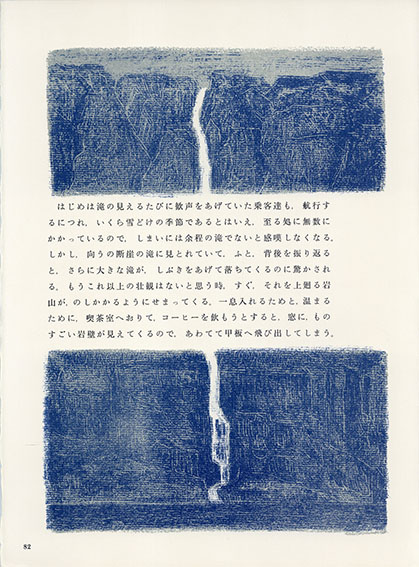 はじめは滝の見えるたびに歓声をあげていた乗客達も、航行す
るにつれ、いくら雪どけの季節であるとはいえ、至る処に無数に
かかっているので、しまいには余程の滝でないと感嘆しなくなる。
しかし、向うの断崖の滝に見とれていて、ふと、背後を振り返る
と、さらに大きな滝が、しぶきをあげて落ちてくるのに驚かされ
る。もうこれ以上の壮観はないと思う時、すぐ、それを上廻る岩
山が、のしかかるようにせまってくる。一息入れるためと、温まる
ために、喫茶室へおりて、コーヒーを飲もうとすると、窓に、もの
すごい岩壁が見えてくるので、あわてて甲板へ飛び出してしまう。
82